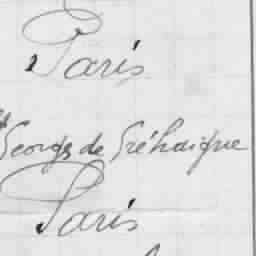 Paris
Georges de Gréhaigne
Paris